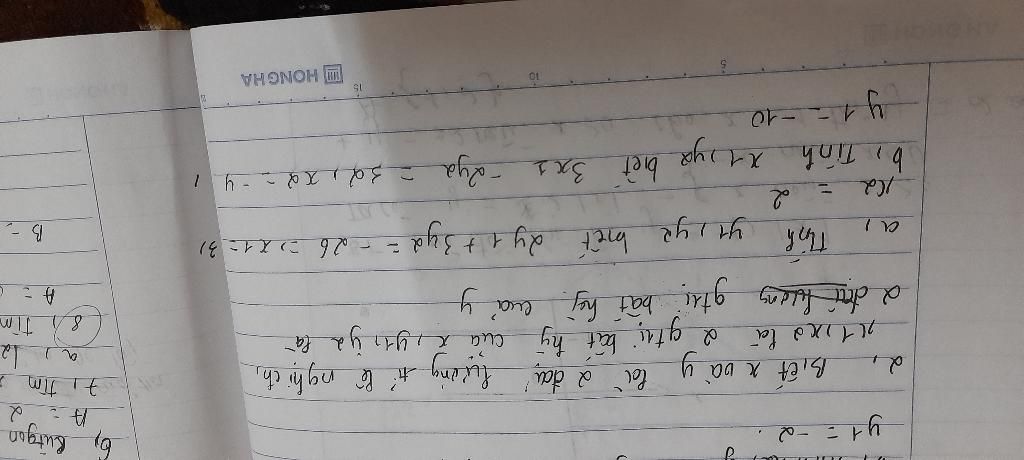 y1 = -2.
2, Biết x và y là 2 đại lượng tỉ lệ nghịch,
x1, x2 là 2 gtri bất kỳ của x, y1, y2 là
2 gtrị bất kỳ của y
a, Tính y1, y2 biết 2y1 + 3y2 = -26, x1 = 3,
x2 = 2
b, Tính x1, y2 biết 3x1 - 2y2 = 32, x2 = -4,
y1 = -10
HONG HA
5
10
15
6, Rút gọn
A = 2
7, Tìm
a, 12
8, Tìm
A =
B =